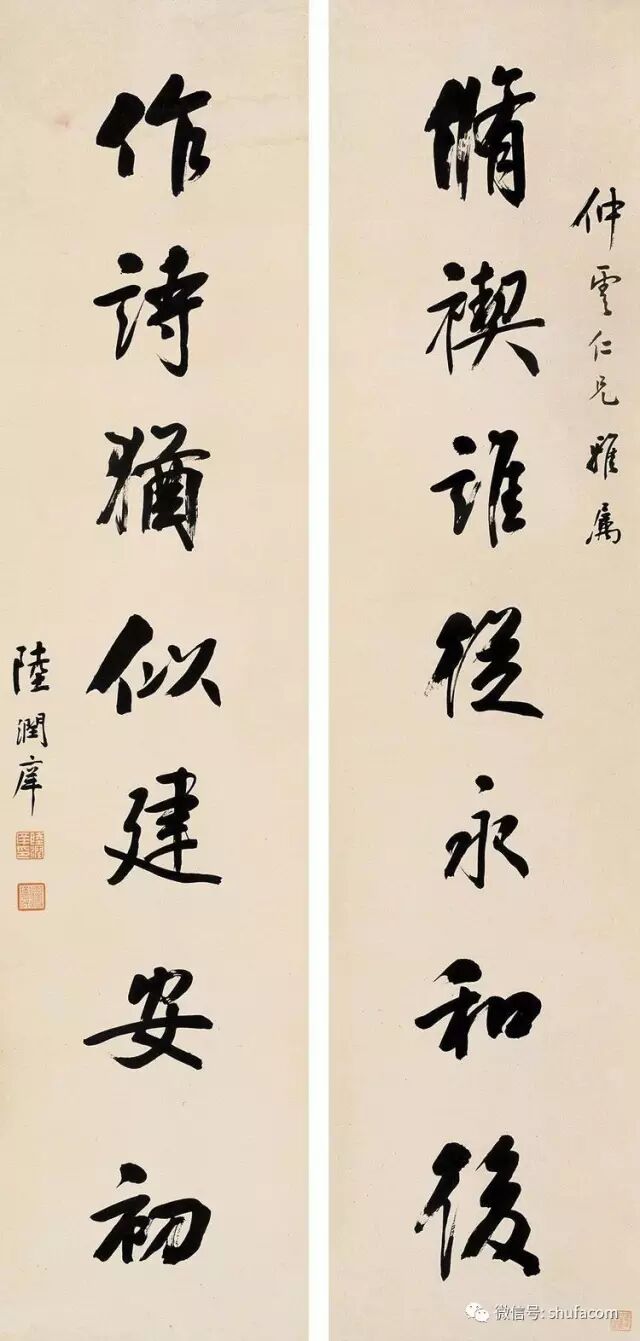 仲雲仁兄雅属
脩禊誰從永和後
作詩猶似建安初
陸潤庠
微信号: shufacom